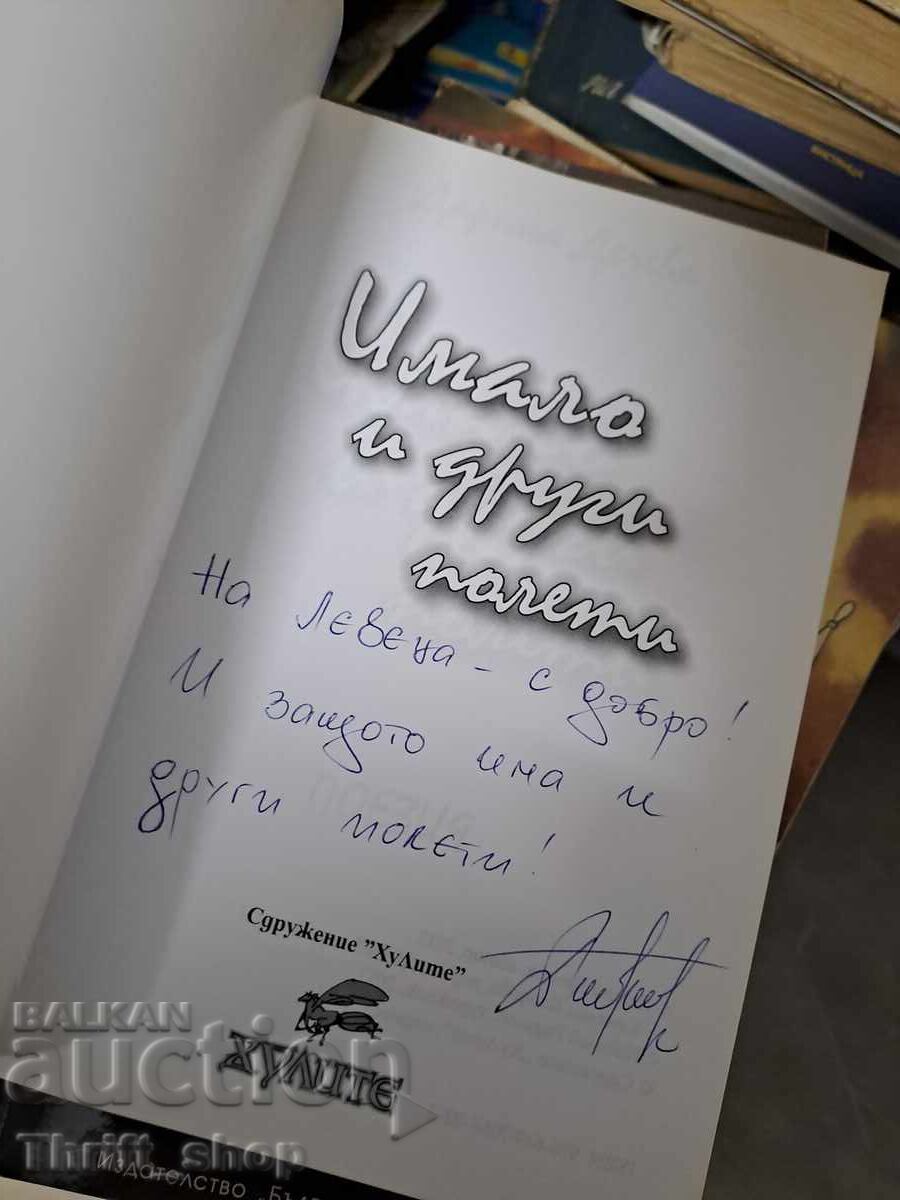 Имало
и други
полети
На Левена - с добро!
И защото има и
други полети!
Сдружение "ХуЛите"
ХУЛИТЕ
Издателство „Бъл
BALKAN
auction
Thrift shop